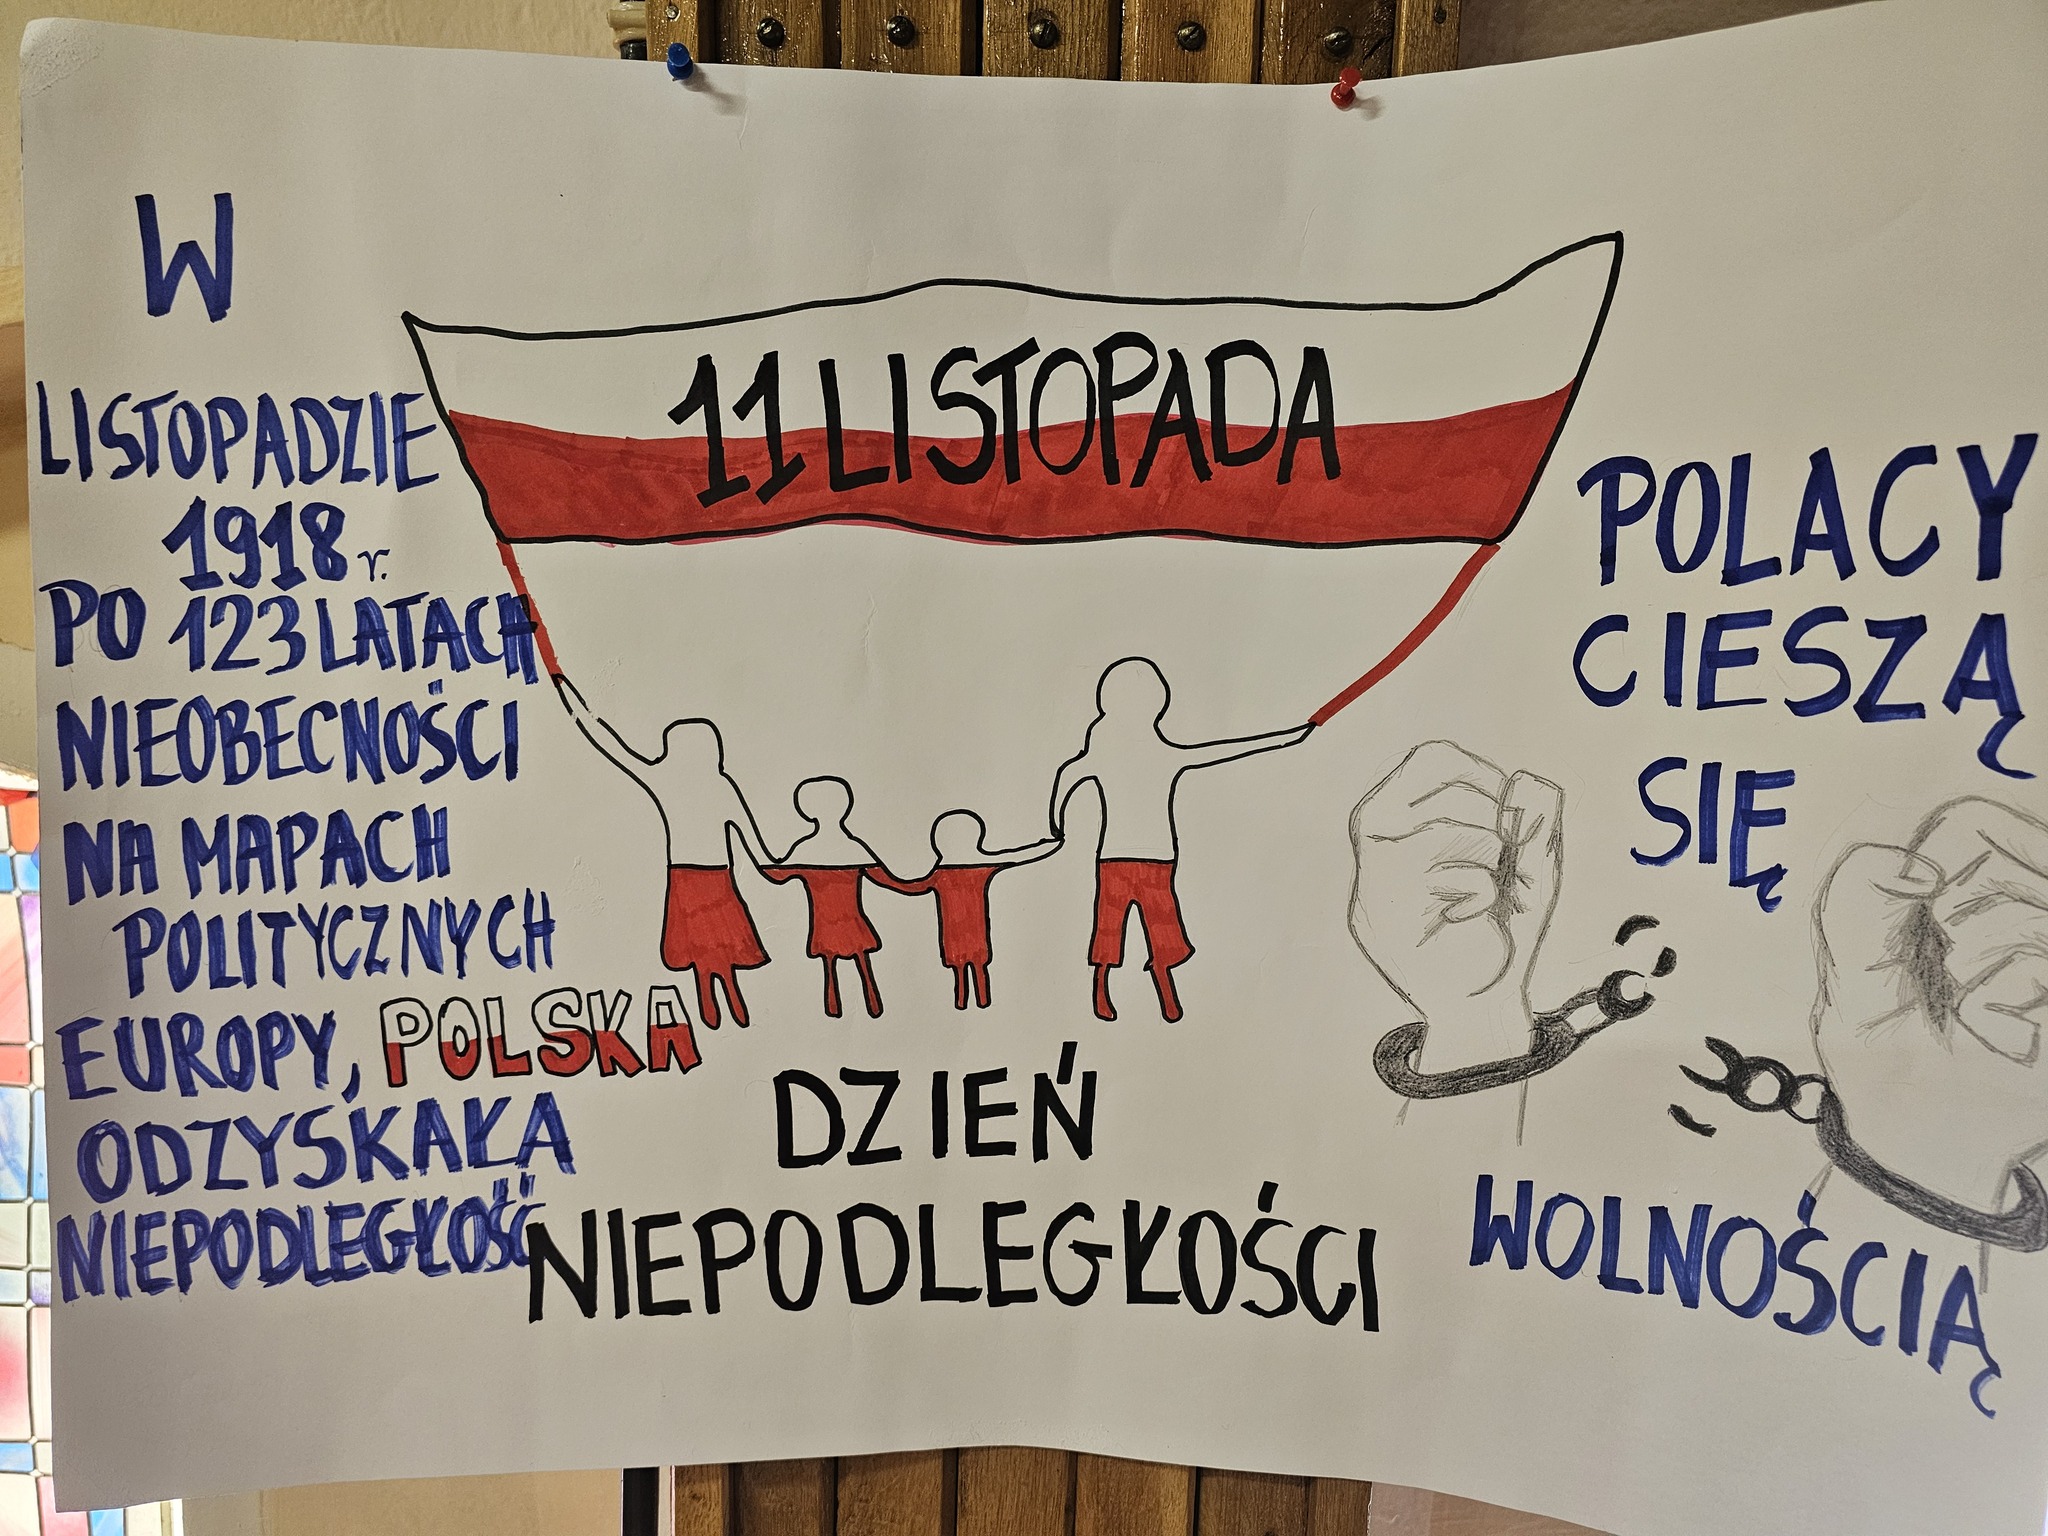 W
LISTOPADZIE
1918 r.
PO 123 LATACH
NIEOBECNOŚCI
NA MAPACH
POLITYCZNYCH
EUROPY, POLSKA
ODZYSKAŁA
NIEPODLEGŁOŚĆ
11 LISTOPADA
DZIEŃ
NIEPODLEGŁOŚCI
POLACY
CIESZĄ
SIĘ
WOLNOŚCIĄ